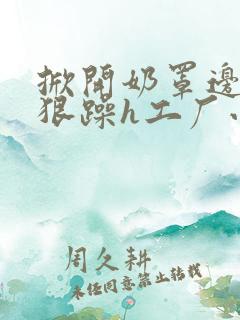 掀开奶罩边
狠躁h工厂.
周久耕
未经同意禁止转载